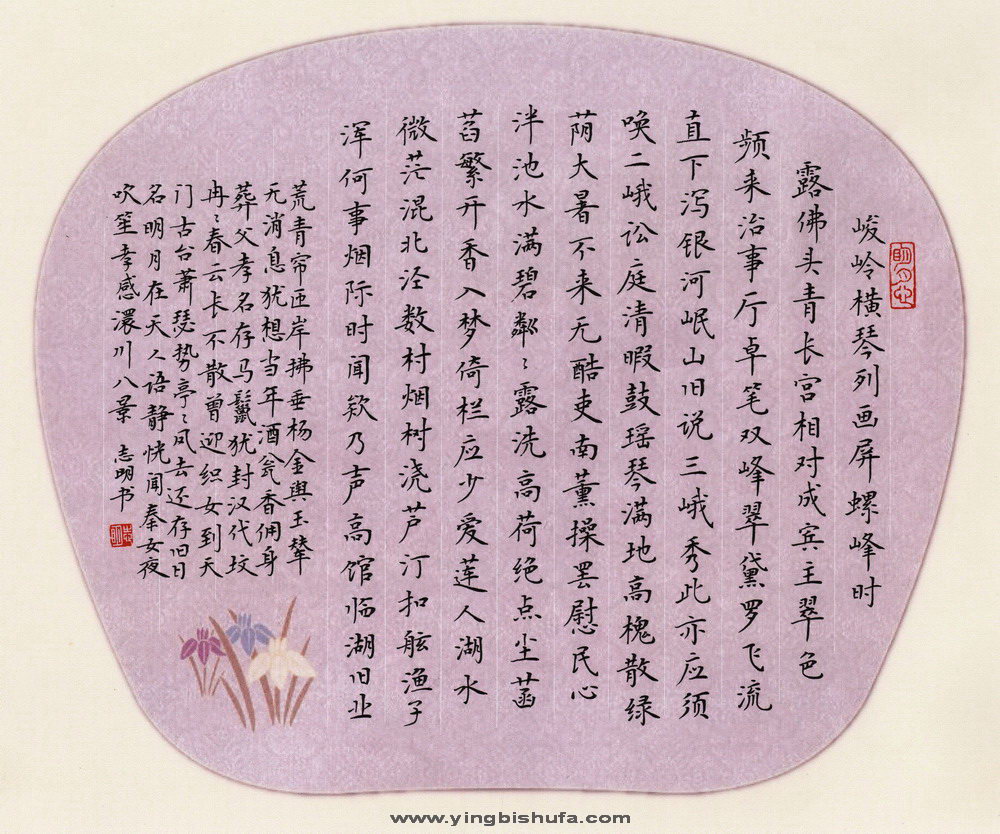 峻岭横琴列画屏螺峰时
露佛头青长宫相对成宾主翠色
频来治事厅卓笔双峰翠黛罗飞流
直下泻银河岷山旧说三峨秀此亦应须
唤二峨讼庭清暇鼓瑶琴满地高槐散绿
荫大暑不来无酷吏南薰操罢慰民心
泮池水满碧粼〻露洗高荷绝点尘菡
萏繁开香入梦倚栏应少爱莲人湖水
微茫混北泾数村烟树浇芦汀扣舷渔子
浑何事烟际时闻欸乃声高馆临湖旧业
荒青帘匝岸拂垂杨金舆玉辇
无消息犹想当年酒瓮香佣身
葬父孝名存马鬣犹封汉代坟
冉〻春云长不散曾迎织女到天
门古台萧瑟势亭〻凤去还存旧日
名明月在天人语静恍闻秦女夜
吹笙孝感澴川八景 志明书
www.yingbishufa.com